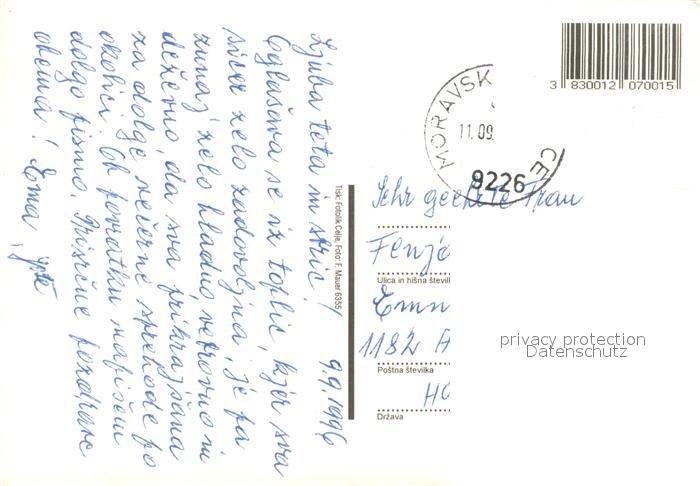 Ljuba teta in stric! 9.9.1996
Oglašava se iz toplic, kjer sva
sicer zelo zadovoljna, je pa
zunaj zelo hladno vetrovno in
deževno, da sva prikrajšana
za dolge večerne sprehode po
okolici. Ob povratku napišem
dolgo pismo. Prisrčne pozdrave
obema! Ema,
Tisk: Fotolik Celje, Foto: F. Mauer 6355
3 830012 070015
MORAVSK
CE
11.09.
9226
Sehr geehrte Frau
Ulica in hišna števil
1182
Poštna številka
Država
privacy protection
Datenschutz